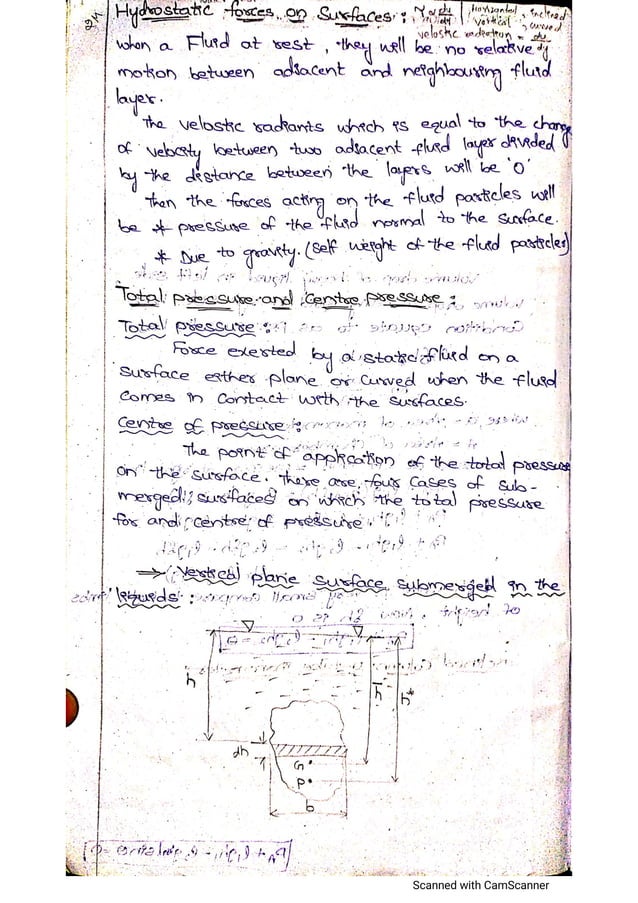 Hydrostatic forces on Surfaces :
Horizontal, inclined
vertical, curved
when a Fluid at rest, they will be no relative
motion between adjacent and neighbouring fluid
layer.
The velostic radiants which is equal to the change
of velocity between two adjacent fluid layer divided
by the distance between the layers will be 'O'
Then the forces acting on the fluid particles will
be * pressure of the fluid normal to the surface.
* Due to gravity. (self weight of the fluid particles)
Total pressure and Centre pressure :
Total pressure :
Force exerted by a static fluid on a
surface either plane or curved when the fluid
comes in contact with the surfaces.
Centre of pressure :
The point of application of the total pressure
on the surface. There are four cases of sub-
merged surfaces on which the total pressure
for and centre of pressure
⇒ Vertical plane surface submerged in the
liquids :
h
h̄
h*
dh
G
P
b
Scanned with CamScanner